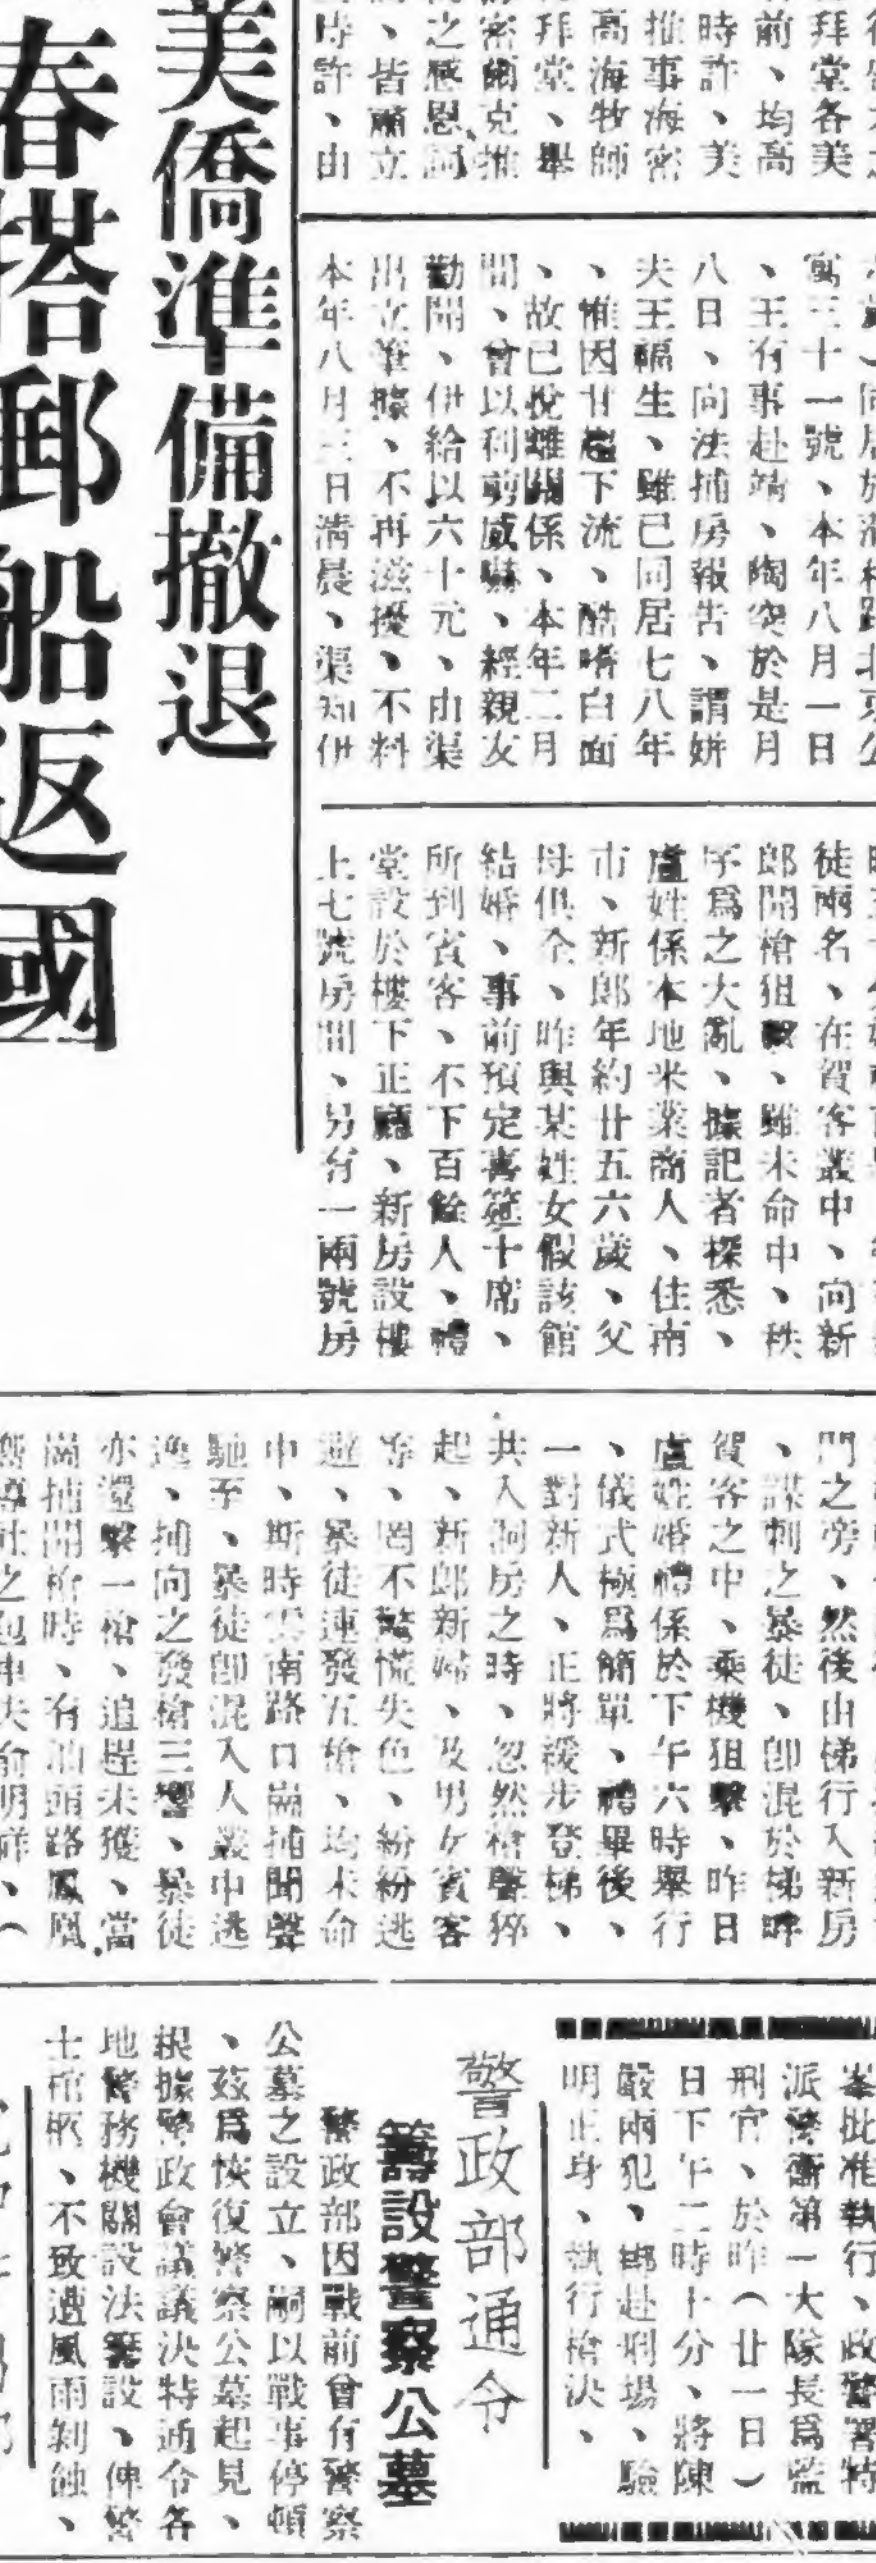 拜堂各美
前、均高
時許、美
推事海密
高海牧師
拜堂、舉
密爾克推
之感恩詞
、皆肅立
時許、由
美僑準備撤退
春搭郵船返國
寓三十一號、本年八月一日
、王有事赴靖、陶突於是月
八日、向法捕房報告、謂姘
夫王福生、雖已同居七八年
、惟因甘趨下流、酷嗜白面
、故已挩離關係、本年二月
間、曾以利剪威嚇、經親友
勸開、伊給以六十元、由渠
出立筆據、不再滋擾、不料
本年八月三日清晨、渠知伊
徒兩名、在賀客叢中、向新
郎開槍狙擊、雖未命中、秩
序爲之大亂、據記者探悉、
盧姓係本地米業商人、住南
市、新郎年約廿五六歲、父
母俱全、昨與某姓女假該館
結婚、事前預定喜筵十席、
所到賓客、不下百餘人、禮
堂設於樓下正廳、新房設樓
上七號房間、另有一兩號房
門之旁、然後由梯行入新房
、謀刺之暴徒、卽混於梯畔
賀客之中、乘機狙擊、昨日
盧姓婚禮係於下午六時舉行
、儀式極爲簡單、禮畢後、
一對新人、正將緩步登梯、
共入洞房之時、忽然槍聲猝
起、新郎新婦、及男女賓客
等、罔不驚慌失色、紛紛逃
避、暴徒連發五槍、均未命
中、斯時雲南路口崗捕聞聲
馳至、暴徒卽混入人叢中逃
逸、捕向之發槍三響、暴徒
亦還擊一槍、追趕未獲、當
崗捕開槍時、有汕頭路鳳凰
嚮導社之包車夫俞明祥、（
峯批准執行、政警署特
派警衞第一大隊長爲監
刑官、於昨（廿一日）
日下午二時十分、將陳
嚴兩犯、綁赴刑場、驗
明正身、執行槍決、
警政部通令
籌設警察公墓
警政部因戰前曾有警察
公墓之設立、嗣以戰事停頓
、茲爲恢復警察公墓起見、
根據警政會議議決特通令各
地警務機關設法籌設、俾警
士棺柩、不致遭風雨剝蝕、